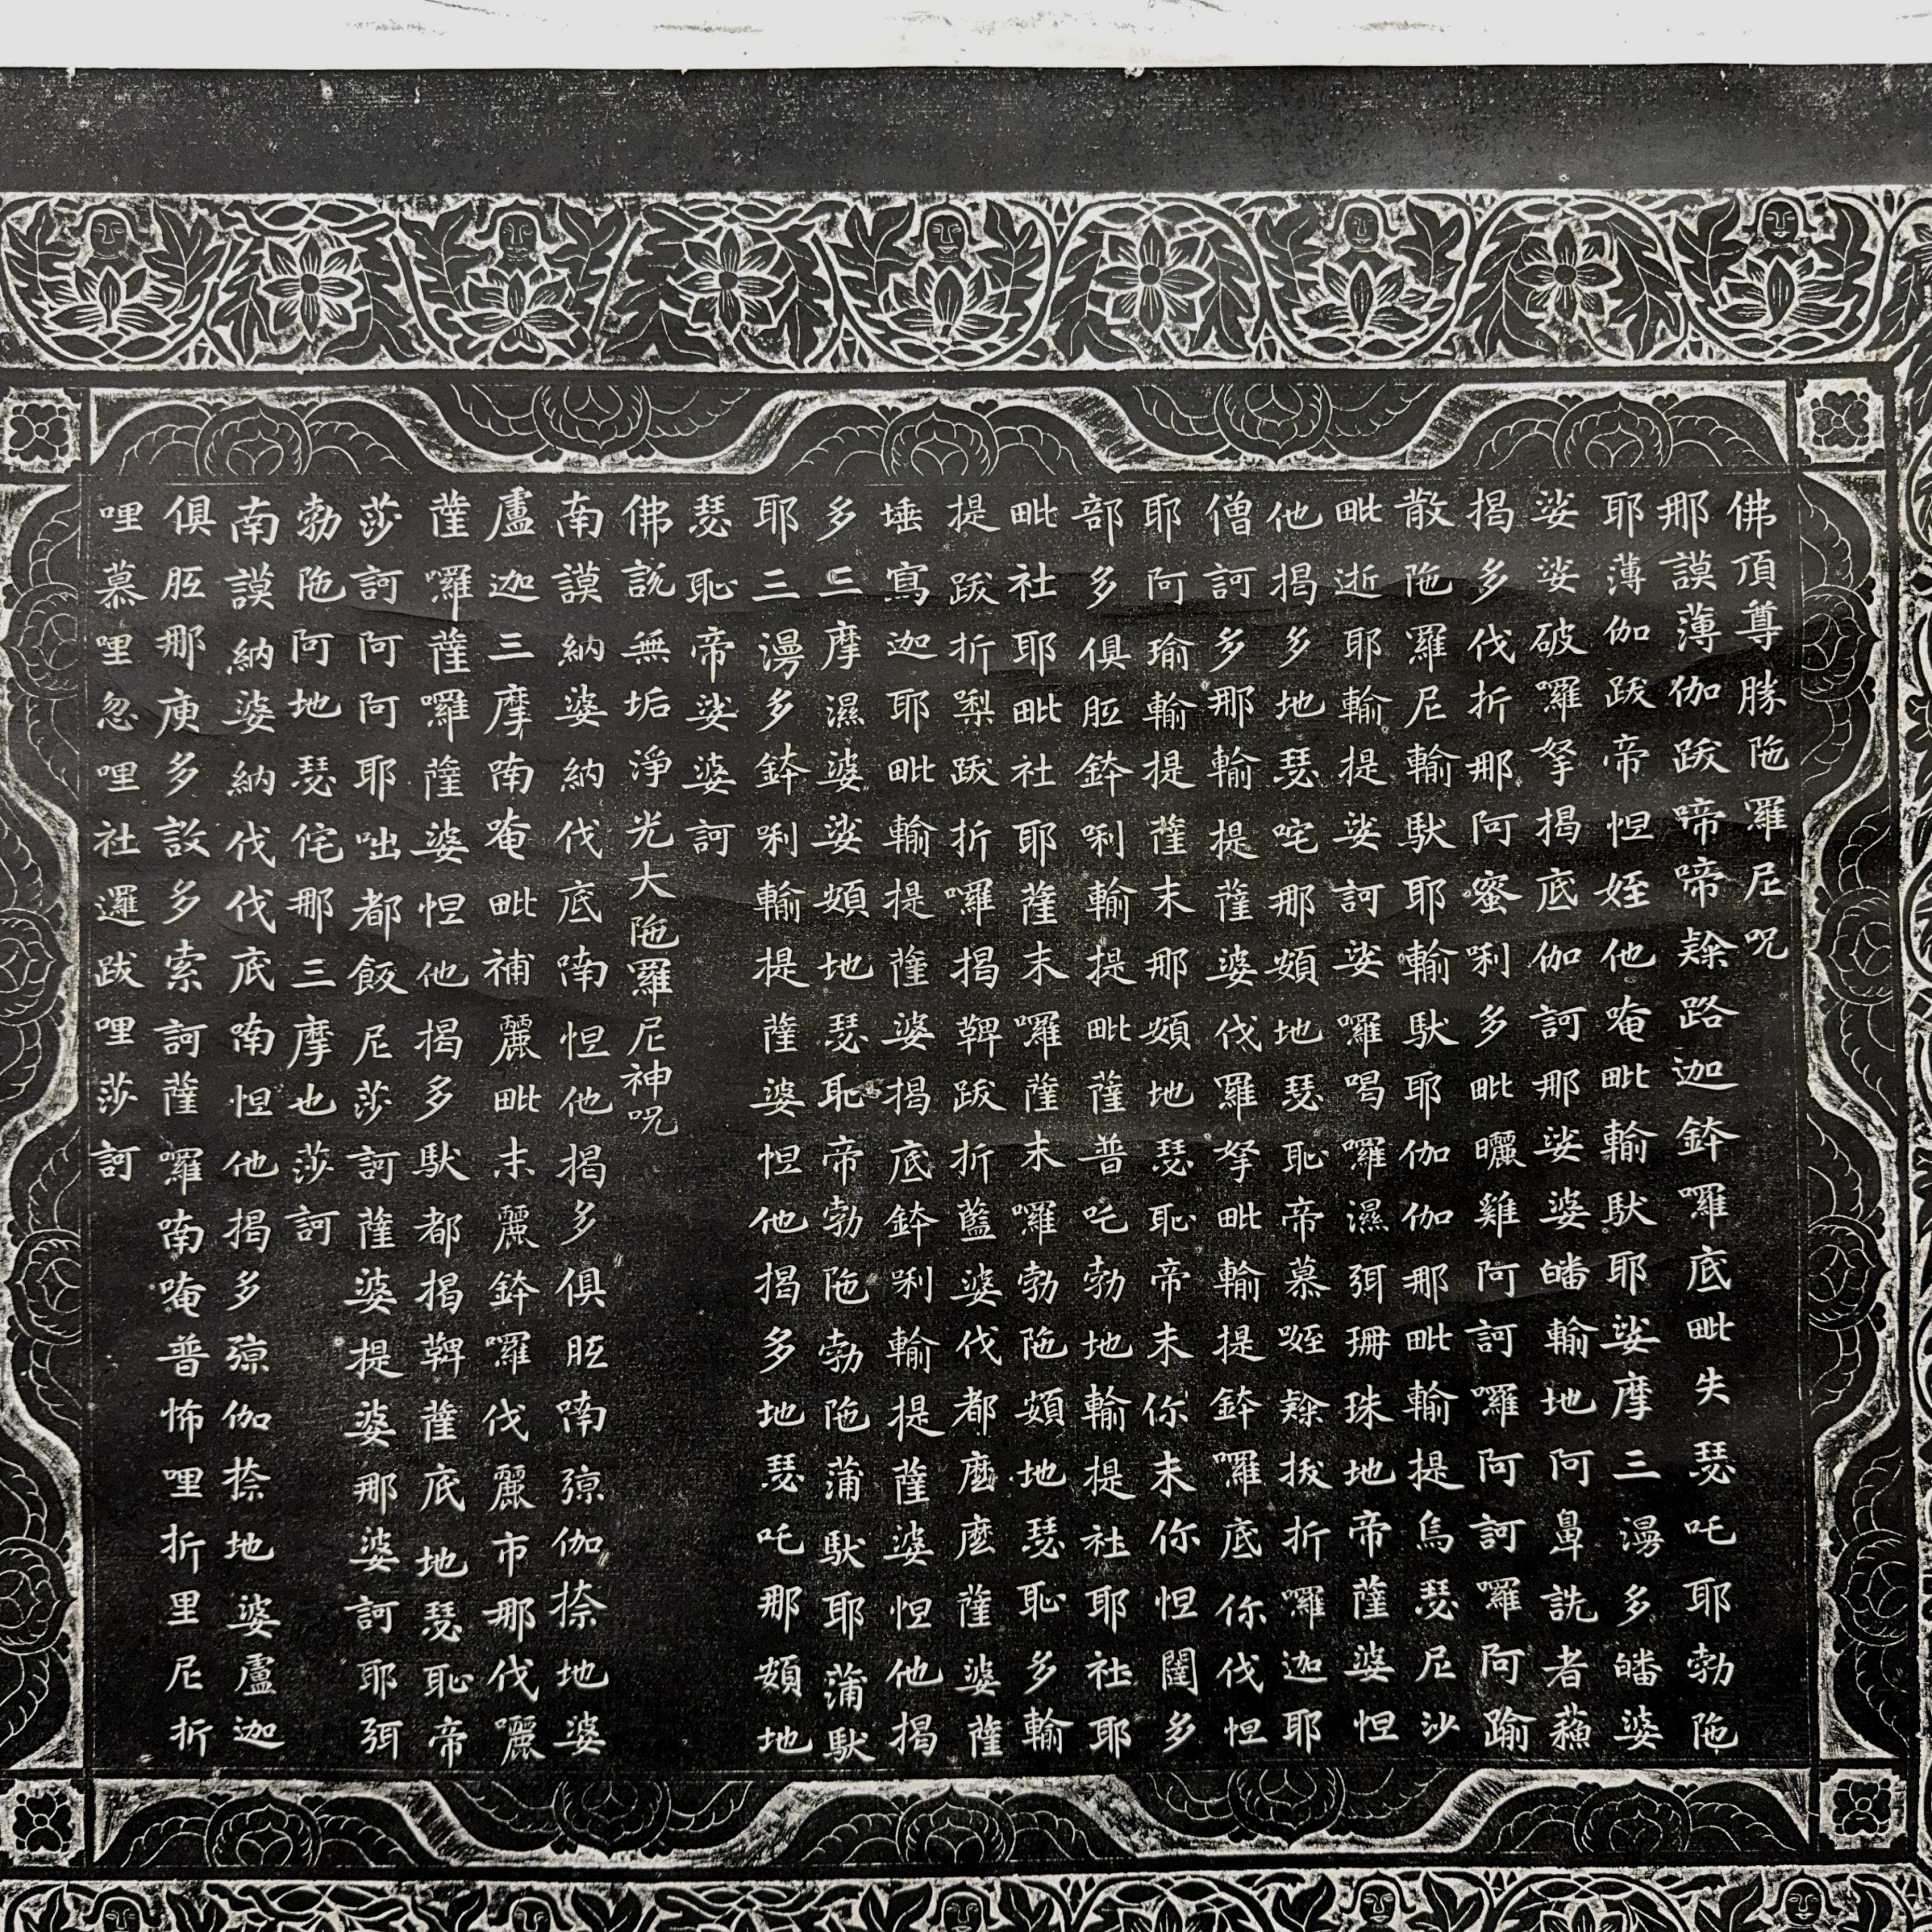 佛頂尊勝陁羅尼呪
那謨薄伽跋啼啼㻶路迦鉢囉底毗失瑟吒耶勃陁
耶薄伽跋帝怛姪他唵毗輸馱耶娑摩三漫多皤婆
娑娑破囉拏揭底伽訶那娑婆皤輸地阿鼻詵者蘓
揭多伐折那阿蜜唎多毗曬雞阿訶囉阿訶囉阿踰
散陁羅尼輸馱耶輸馱耶伽伽那毗輸提烏瑟尼沙
毗逝耶輸提娑訶娑囉喝囉濕弭珊珠地帝薩婆怛
他揭多地瑟咤那頞地瑟恥帝慕㗌㻶拔折囉迦耶
僧訶多那輸提薩婆伐羅拏毗輸提鉢囉底你伐怛
耶阿瑜輸提薩末那頞地瑟恥帝末你末你怛闥多
部多俱胝鉢唎輸提毗薩普吒勃地輸提社耶社耶
毗社耶毗社耶薩末囉薩末囉勃陁頞地瑟恥多輸
提跋折梨跋折囉揭鞞跋折藍婆伐都麼麼薩婆薩
埵寫迦耶毗輸提薩婆揭底鉢唎輸提薩婆怛他揭
多三摩濕婆娑頞地瑟恥帝勃陁勃陁蒲馱耶蒲馱
耶三漫多鉢唎輸提薩婆怛他揭多地瑟吒那頞地
瑟恥帝娑婆訶
佛說無垢淨光大陁羅尼神呪
南謨納婆納伐底喃怛他揭多俱胝喃殑伽捺地婆
盧迦三摩喃唵毗補麗毗末麗鉢囉伐麗市那伐囇
薩囉薩囉薩婆怛他揭多馱都揭鞞薩底地瑟恥帝
莎訶阿阿耶咄都飯尼莎訶薩婆提婆那婆訶耶弭
勃陁阿地瑟侘那三摩也莎訶
南謨納婆納伐伐底喃怛他揭多殑伽捺地婆盧迦
俱胝那庾多設多索訶薩囉喃唵普怖哩折里尼折
哩慕哩忽哩社邏跋哩莎訶